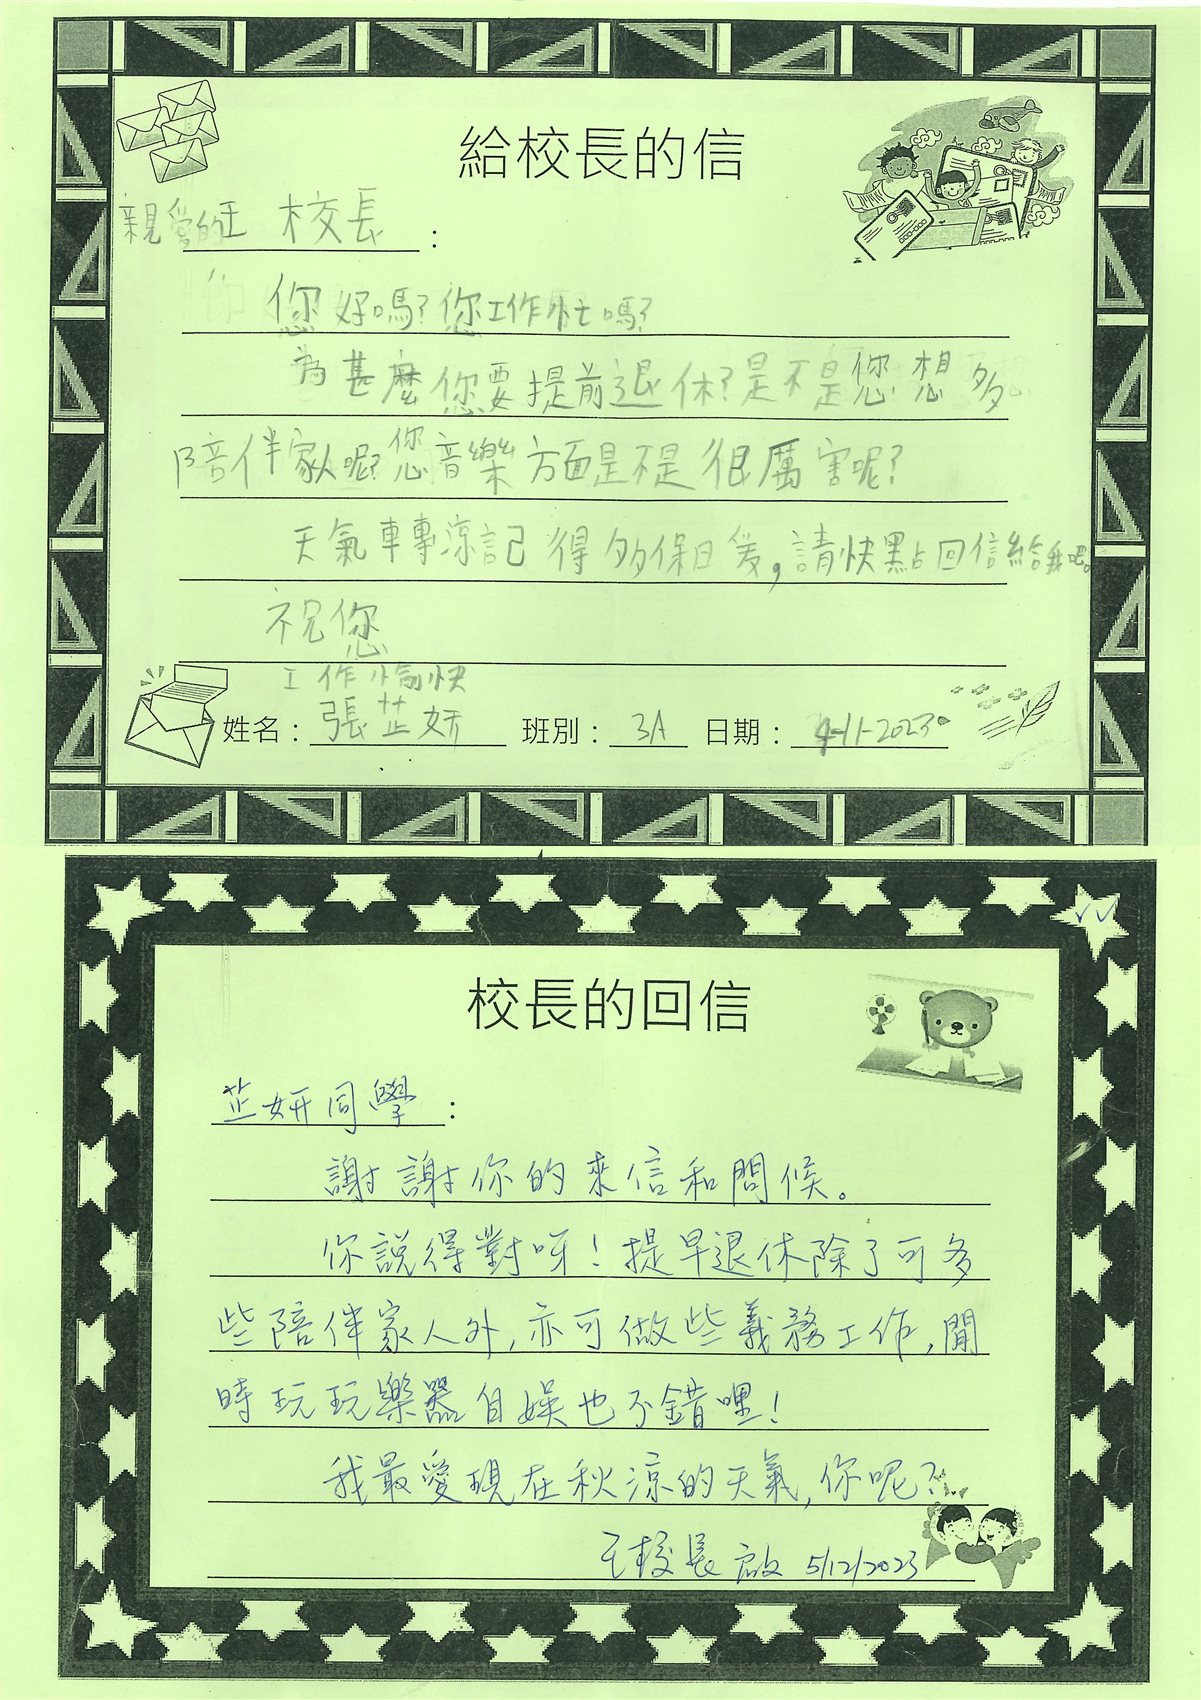 給校長的信
親愛的王校長:
您好嗎?您工作忙嗎?
為甚麼您要提前退休?是不是您想多
陪伴家人呢?您音樂方面是不是很厲害呢?
天氣轉涼記得多多保暖,請快點回信給我吧。
祝您
工作愉快
姓名:張芷妍 班別:3A 日期:4-11-2023
校長的回信
芷妍同學:
謝謝你的來信和問候。
你說得對呀!提早退休除了可多
些陪伴家人外,亦可做些義務工作,閒
時玩玩樂器自娛也不錯哩!
我最愛現在秋涼的天氣,你呢?
王校長啟 5/12/2023